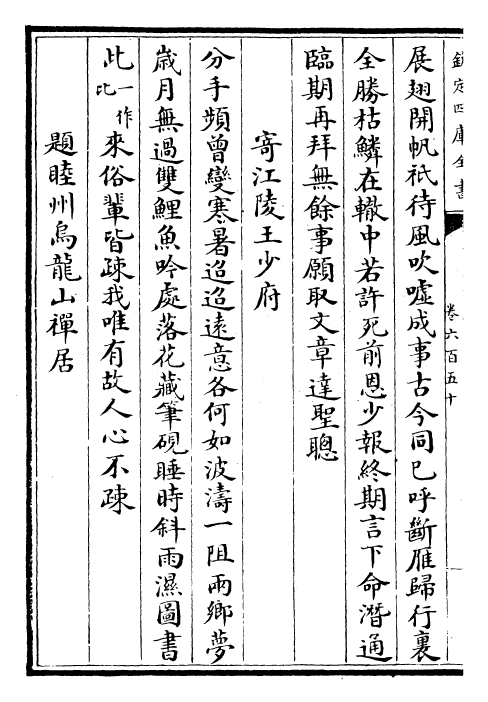 欽定四庫全書
卷六百五十
展翅開帆衹待風吹噓成事古今同已呼斷雁歸行裏
全勝枯鱗在轍中若許死前恩少報終期言下命潛通
臨期再拜無餘事願取文章達聖聰
寄江陵王少府
分手頻曾變寒暑迢迢遠意各何如波濤一阻兩鄉夢
歲月無過雙鯉魚吟處落花藏筆硯睡時斜雨濕圖書
此一作比來俗輩皆疎我唯有故人心不疎
題睦州烏龍山禪居